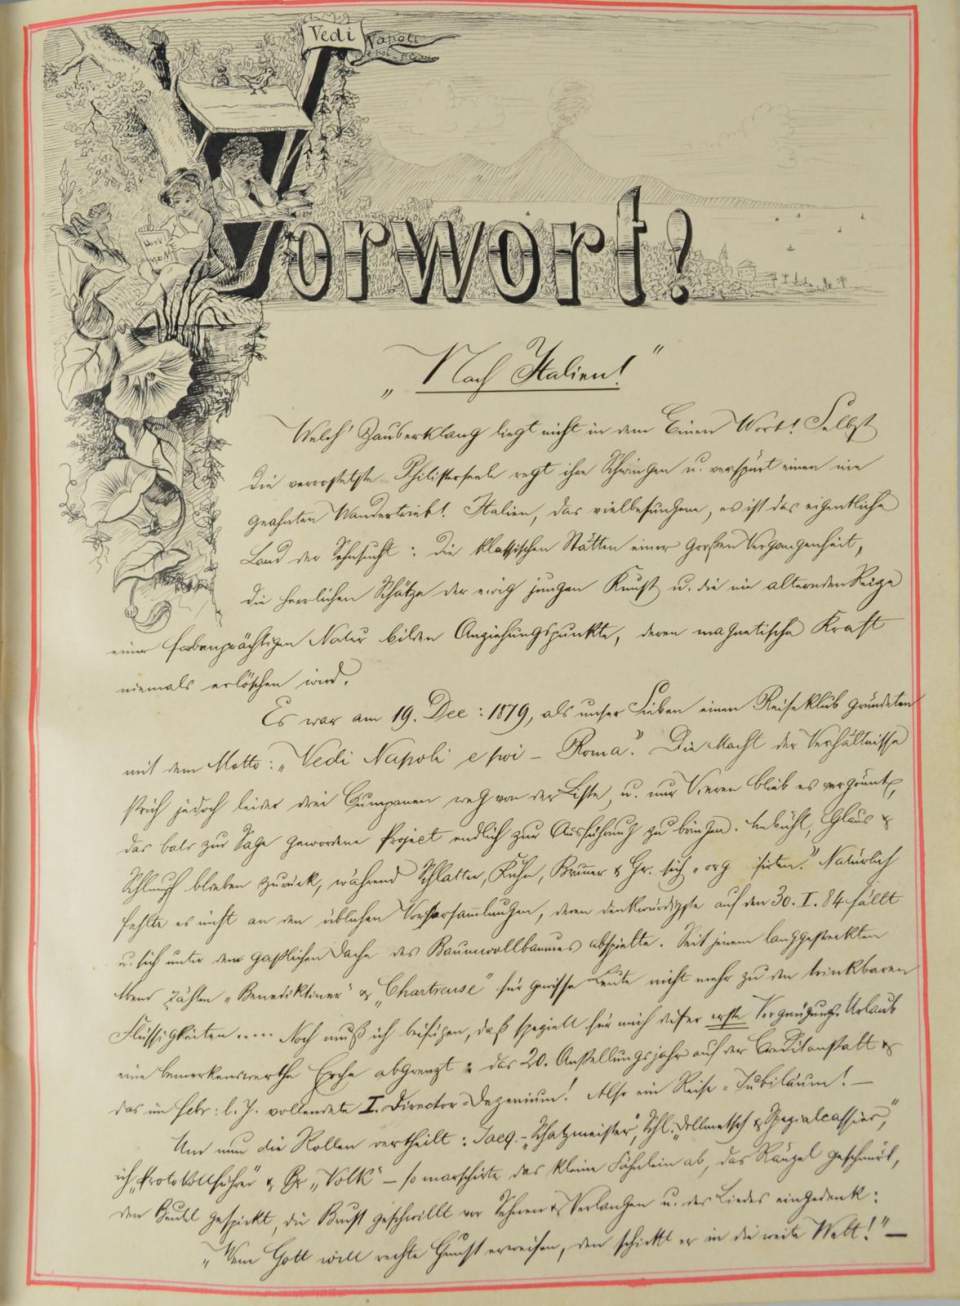 Vedi Napoli
e poi – Roma
Vorwort!
„Nach Italien!“
Welch' Zauberklang liegt nicht in dem Einen Wort! Selbst
die verrostetste Philisterseele regt ihre Schwingen u. verspürt einen nie
geahnten Wandertrieb! Italien, das vielbesungene, es ist das eigentliche
Land der Sehnsucht: die klassischen Stätten einer großen Vergangenheit,
die herrlichen Schätze der ewig jungen Kunst u. die nie alternden Reize
einer farbenprächtigen Natur bilden Anziehungspunkte, deren magnetische Kraft
niemals erlöschen wird.
Es war am 19. Dec: 1879, als unser Sieben einen Reiseklub gründeten
mit dem Motto: „Vedi Napoli e poi – Roma“. Die Macht der Verhältnisse
strich jedoch leider drei Cumpanen weg von der Liste, u. nur Vieren blieb es vergönnt,
das bald zur Sage gewordene Project endlich zur Ausführung zu bringen. &
Schlumpf blieben zurück, während Schlatter, Kuhn, Brunner & Gr. sich Natürlich
fehlte es nicht an den üblichen Vorversammlungen, deren denkwürdigste auf den 30. I. 84 fällt
u. sich unter dem gastlichen Dache des Baumwollbaumes abspielte. Seit jenem langgestreckten
Abend zählen „Benediktiner“ & „Chartreuse“ für gewisse Leute nicht mehr zu den trinkbaren
Flüssigkeiten .... Noch muß ich beifügen, daß speziell für mich dieser erste Vergnügungs-Urlaub
eine bemerkenswerthe Epoche abgrenzt: das 20. Anstellungsjahr auf der Creditanstalt &
das im febr: l. J. vollendete I. Director-Dezenium! Also ein Reise-Jubiläum! –
Um nun die Rollen vertheilt: Jacq. – „Schatzmeister“, Schl. „Dollmetsch & Spezialcassier“,
ich „Protokollführer“ & Gr. „Volk“ – so marschirte das kleine Fähnlein ab, das Ränzel geschnürt,
den Beutel gespickt, die Brust geschwellt vor Sehnen & Verlangen u. des Liedes eingedenk:
„Wem Gott will rechte Gunst erweisen, den schickt er in die weite Welt!“ –